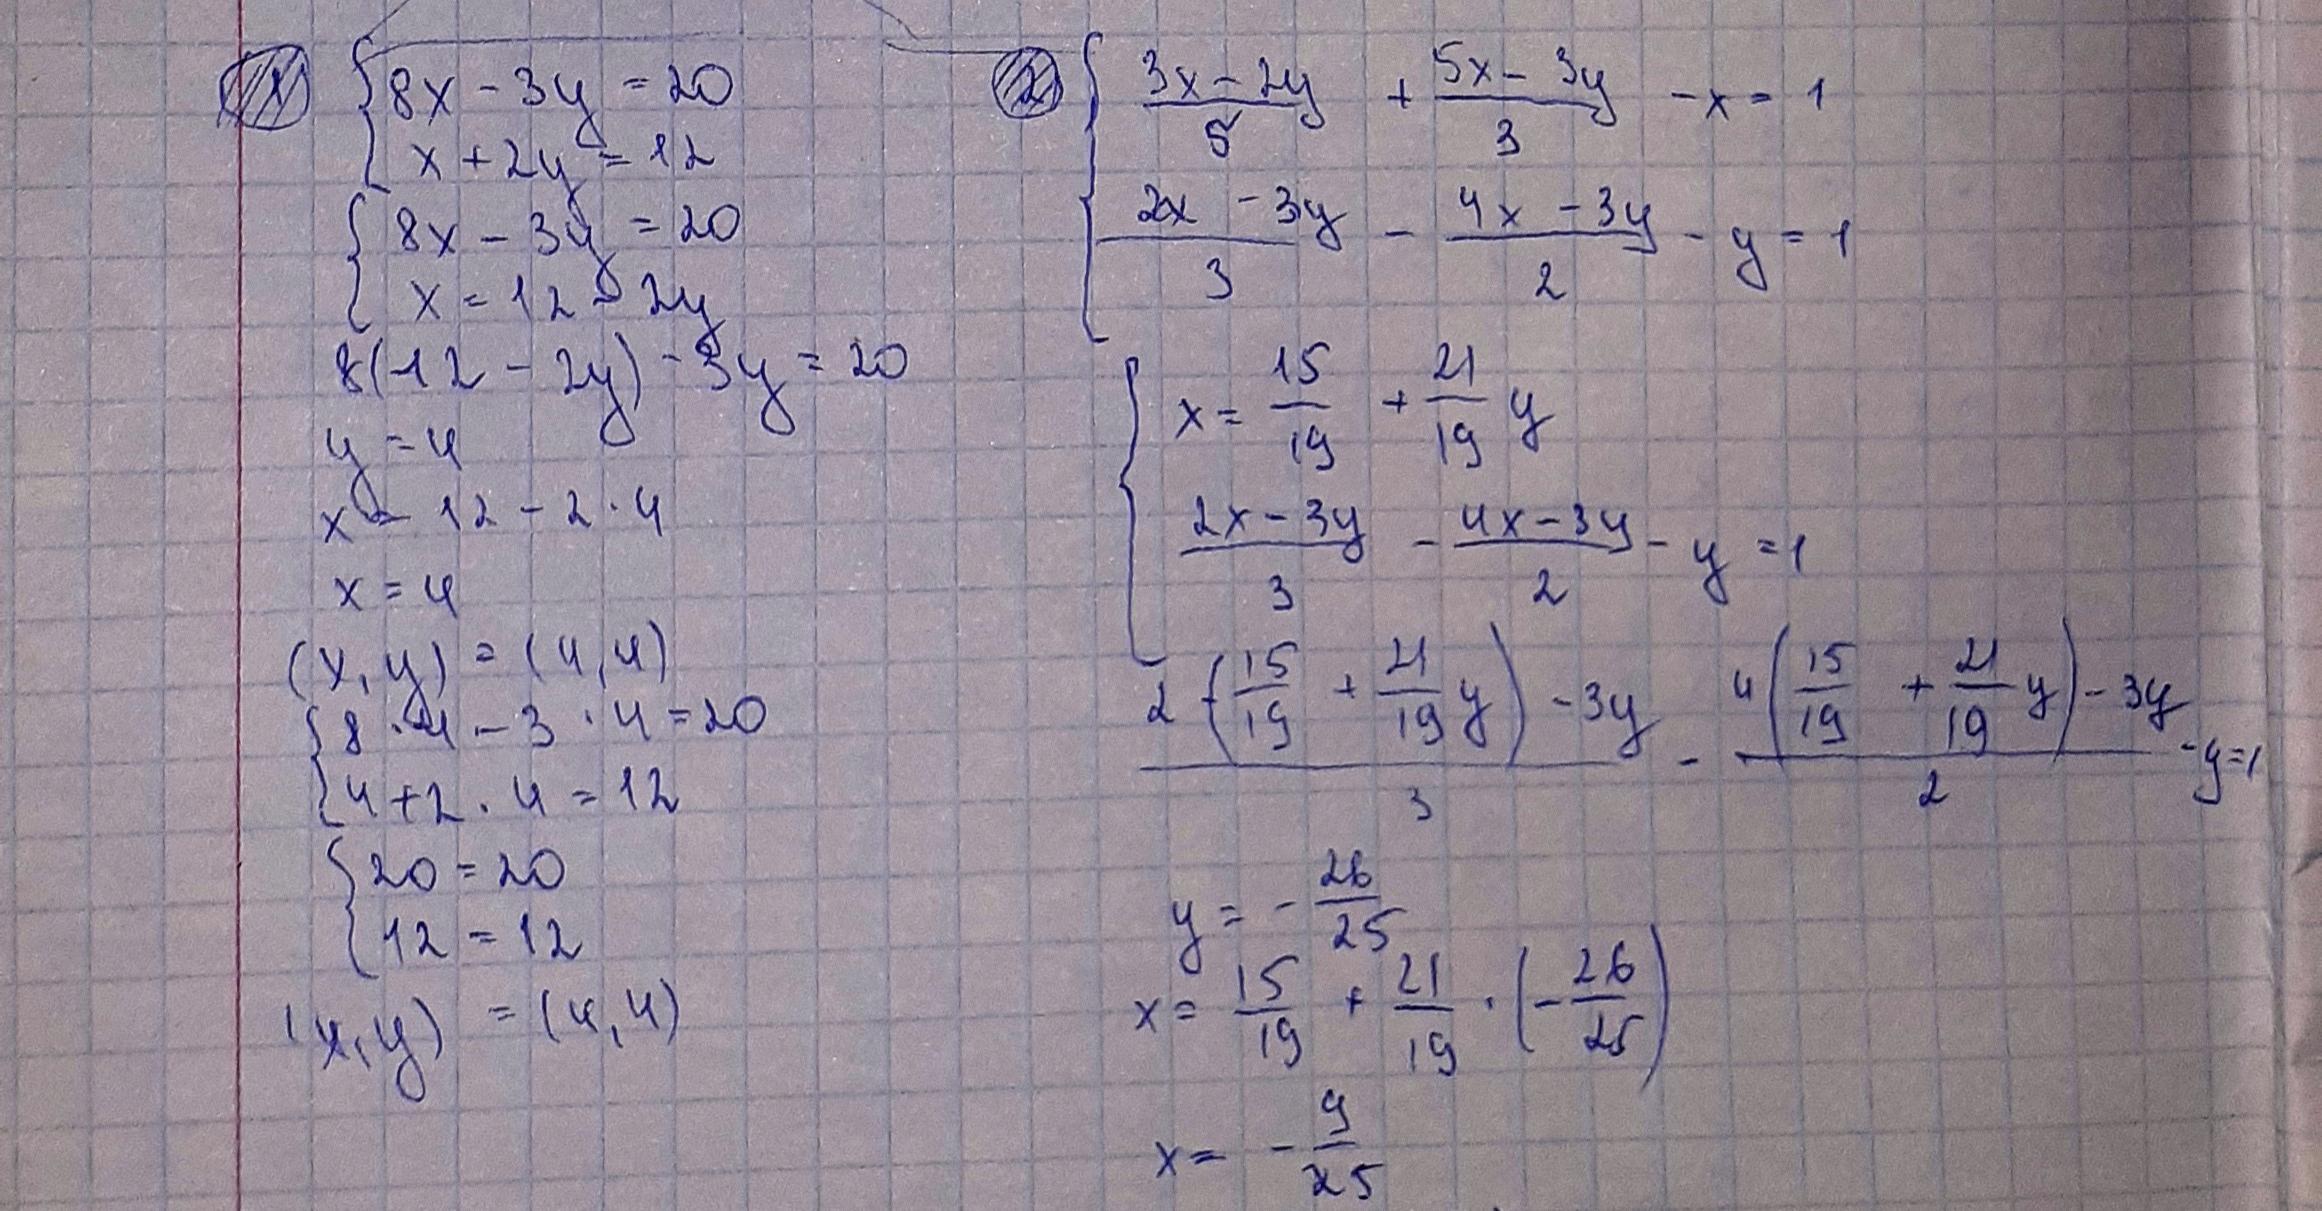 1
{ 8x - 3y = 20
x + 2y = 12
{ 8x - 3y = 20
x = 12 - 2y
8(12 - 2y) - 3y = 20
y = 4
x = 12 - 2 · 4
x = 4
(x, y) = (4, 4)
{ 8 · 4 - 3 · 4 = 20
4 + 2 · 4 = 12
{ 20 = 20
12 = 12
(x, y) = (4, 4)
2
{ (3x - 2y)/5 + (5x - 3y)/3 - x = 1
(2x - 3y)/3 - (4x - 3y)/2 - y = 1
{ x = 15/19 + 21/19 y
(2x - 3y)/3 - (4x - 3y)/2 - y = 1
(2(15/19 + 21/19 y) - 3y)/3 - (4(15/19 + 21/19 y) - 3y)/2 - y = 1
y = - 26/25
x = 15/19 + 21/19 · (- 26/25)
x = - 9/25